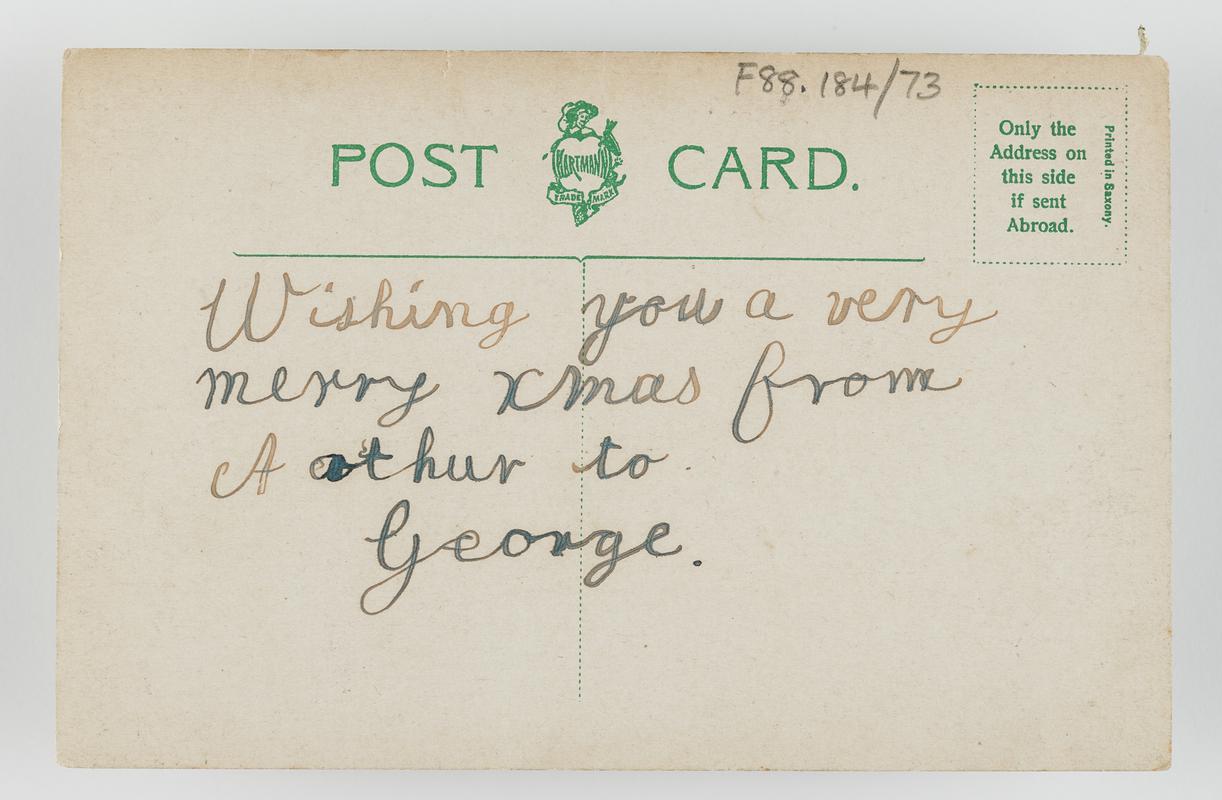 F88.184/73
POST CARD.
HARTMANN
TRADE MARK
Only the
Address on
this side
if sent
Abroad.
Printed in Saxony.
Wishing you a very
merry xmas from
A othur to
George.